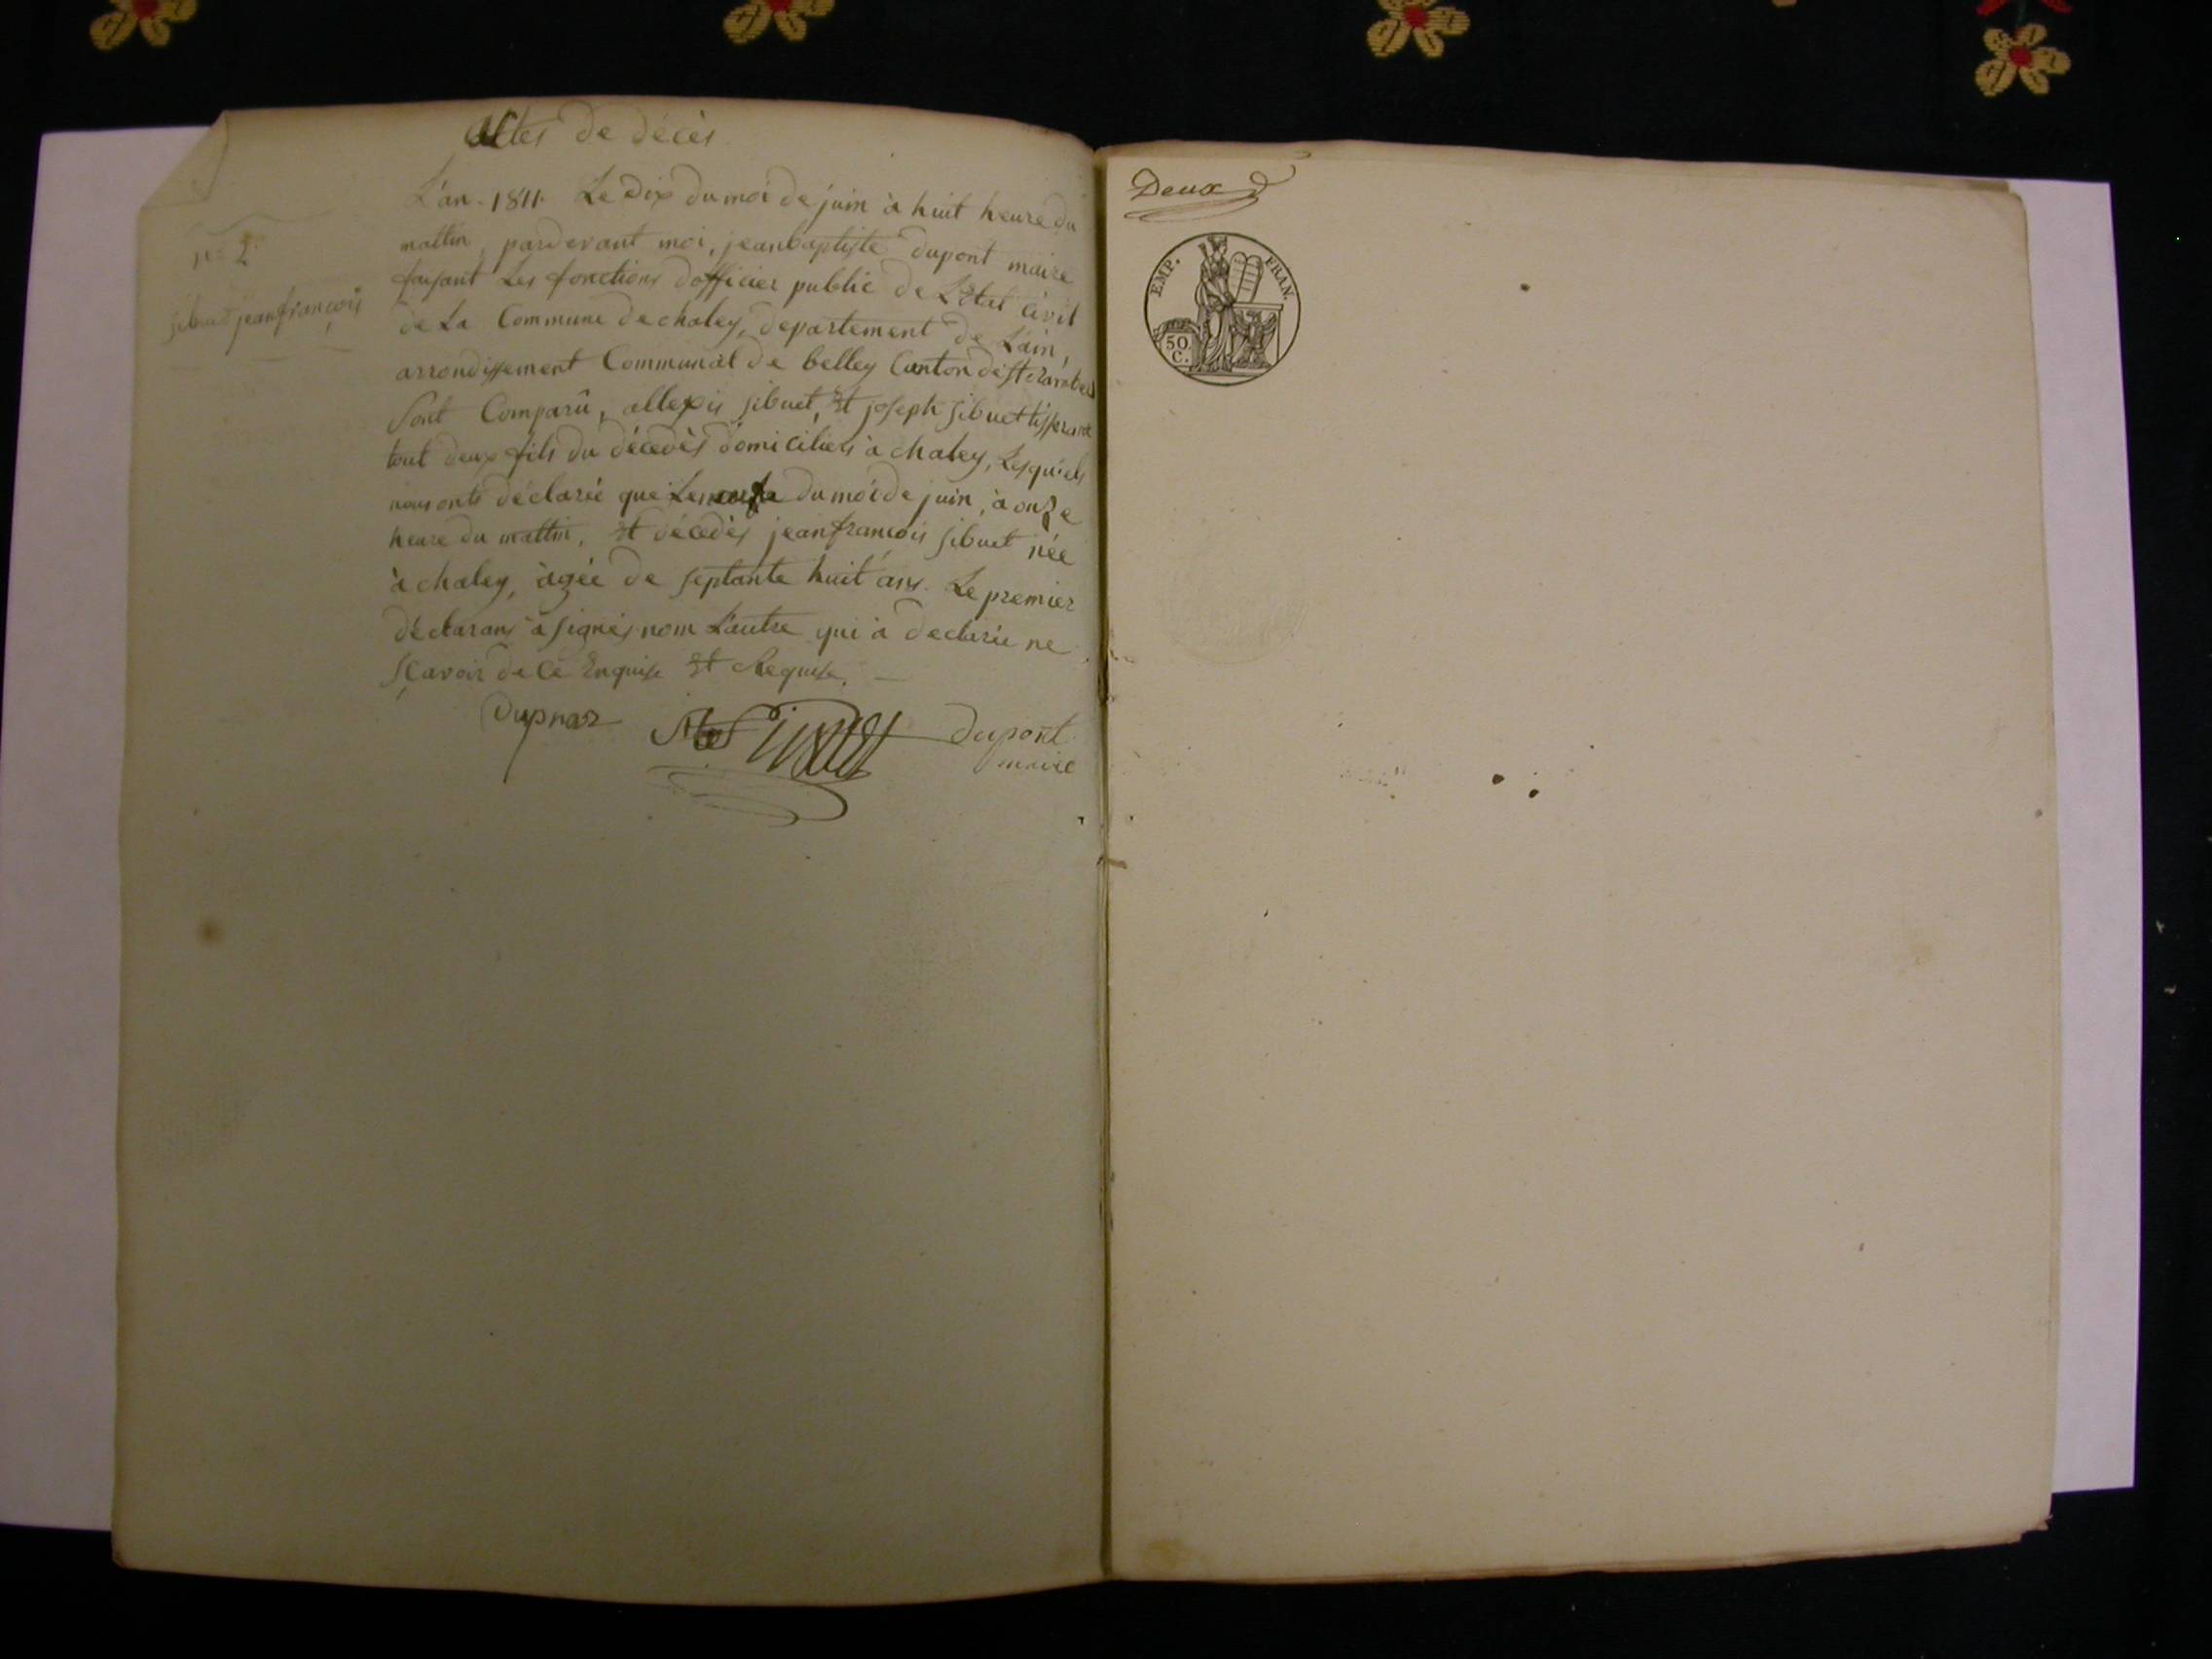 actes de décès
n.° 2.
sibuet jeanfrançois
L'an. 1811. Le dix du moi de juin à huit heure du
mattin, pardevant moi, jeanbaptiste dupont maire
faisant Les fonctions d'officier public de L'Etat civil
de La Commune de chaley, departement de L'ain,
arrondissement Communal de belley Canton de st rambert
Sont Comparû, allexis sibuet, Et joseph sibuet tisserant
tout deux fils du décedès domiciliers à chaley, Lesquiels
nous onts déclarée que Le du moi de juin, à onze
heure du mattin, Et décedès jeanfrancois sibuet née
à chaley, àgée de septante huit ans. Le premier
déclarans à signés nom L'autre qui à declarée ne
sçavoir de Cé Enquise Et Requise.
dupont
maire
Deux
EMP. FRAN.
50
C.